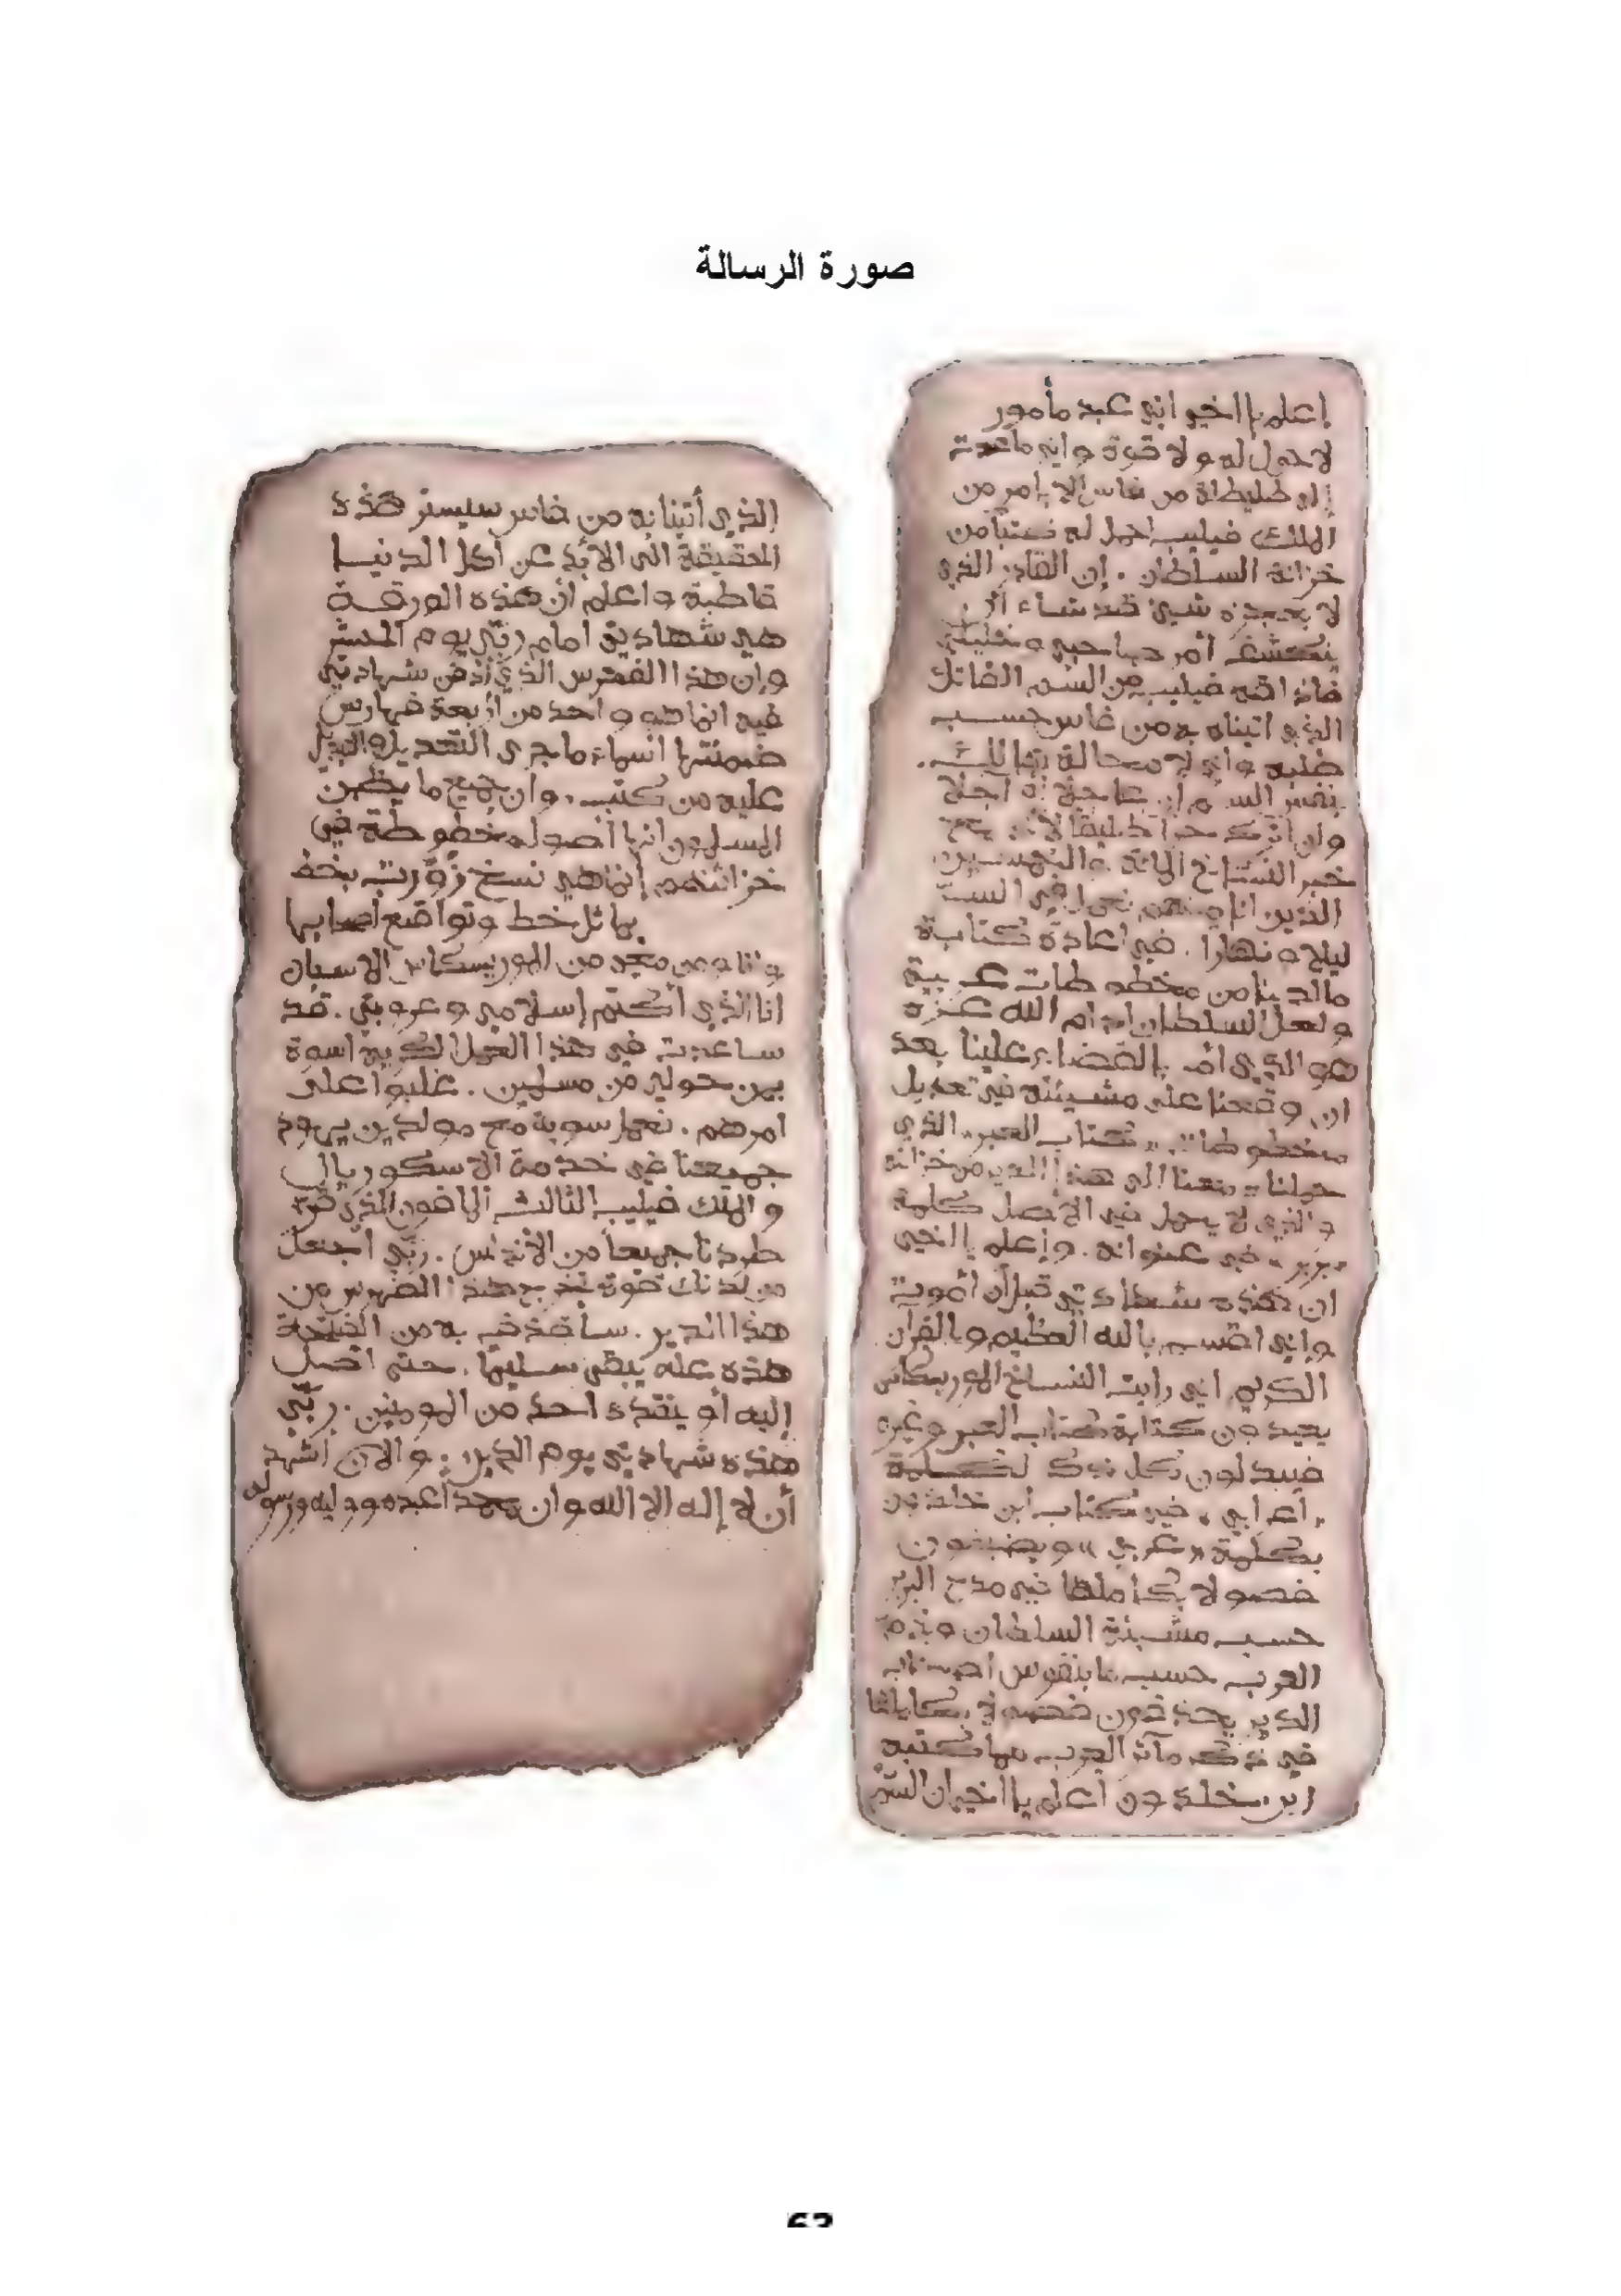 صورة الرسالة
إعلم يا اخي اني عبد مأمور
لا حول له ولا قوة واني ما عدت
إلى طليطلة من فاس الا بامر من
الملك فيليب احمل له كتبا من
خزانة السلطان . إن القادر الذي
لا يعجزه شيئ قد شاء أن
ينكشف أمر صاحبي وخليلي
فاذاقه فيليب من السم القاتل
الذي اتيناه به من فاس حسب
طلبه واني لا محالة هالك .
بنفس السم إن عاجلا او آجلا
وان أترك حرا طليقا
خبر النساخ المائة والخمسين
الذين
ليلا ونهارا . في اعادة كتابة
ما لدينا من مخطوطات عربية
ولعل السلطان ادام الله عزه
هو الذي أمر بالقضاء علينا بعد
ان وقعنا على مشيئته في تعديل
مخطوطات " كتاب العبر " الذي
حملنا معنا الى هذا الدير من خزانة
والذي لا يحمل في الأصل كلمة
"بربر" في عنوانه . وإعلم يا اخي
ان هذه شهادتي قبل أن أموت
واني اقسم بالله العظيم وبالقرآن
الكريم اني رايت النساخ الموريسكاس
يعيدون كتابة كتاب العبر وغيره
فيبدلون كل ذكر لكلمة
"أعرابي" في كتاب ابن خلدون
بكلمة "عربي" ويضيفون
فصولا بكاملها في مدح البربر
حسب مشيئة السلطان وذم
العرب حسب ما بنفوس اصحاب
الدير يحذفون فصولا بكاملها
في ذكر مآثر العرب مما كتبه
ابن خلدون اعلم يا اخي ان السم
الذي أتينا به من فاس سيستر هذه
الحقيقة الى الأبد عن اهل الدنيا
قاطبة واعلم أن هذه الورقة
هي شهادتي امام ربي يوم الحشر
وإن هذا الفهرس الذي أدفن شهادتي
فيه انما هو واحد من أربعة فهارس
ضمنتها اسماء ما جرى التعديل
عليه من كتب . وان جميع ما يظن
المسلمون انها أصول مخطوطة في
خزائنهم إنما هي نسخ زورت بخط
يماثل خط وتواقيع أصحابها
وانا ومن معي من الموريسكاس الاسبان
انا الذي أكتم إسلامي وعروبتي . قد
ساعدت في هذا العمل الكريه اسوة
بمن حولي من مسلمين . غلبوا على
امرهم . نعمل سوية مع مولدين يهود
جميعنا في خدمة الاسكوريال
والملك فيليب الثالث المافون الذي قرر
طردنا جميعاً من الأندلس . ربي اجعل
من لدنك قوة تخرج هذا الفهرس من
هذا الدير . سأقذف به من الفتحة
هذه عله يبقى سليما . حتى اصل
إليه أو ينقذه احد من المومنين . ربي
هذه شهادتي يوم الدين . والآن اشهد
أن لا إله الا الله وان محمدا عبده ووليه ورسوله
63